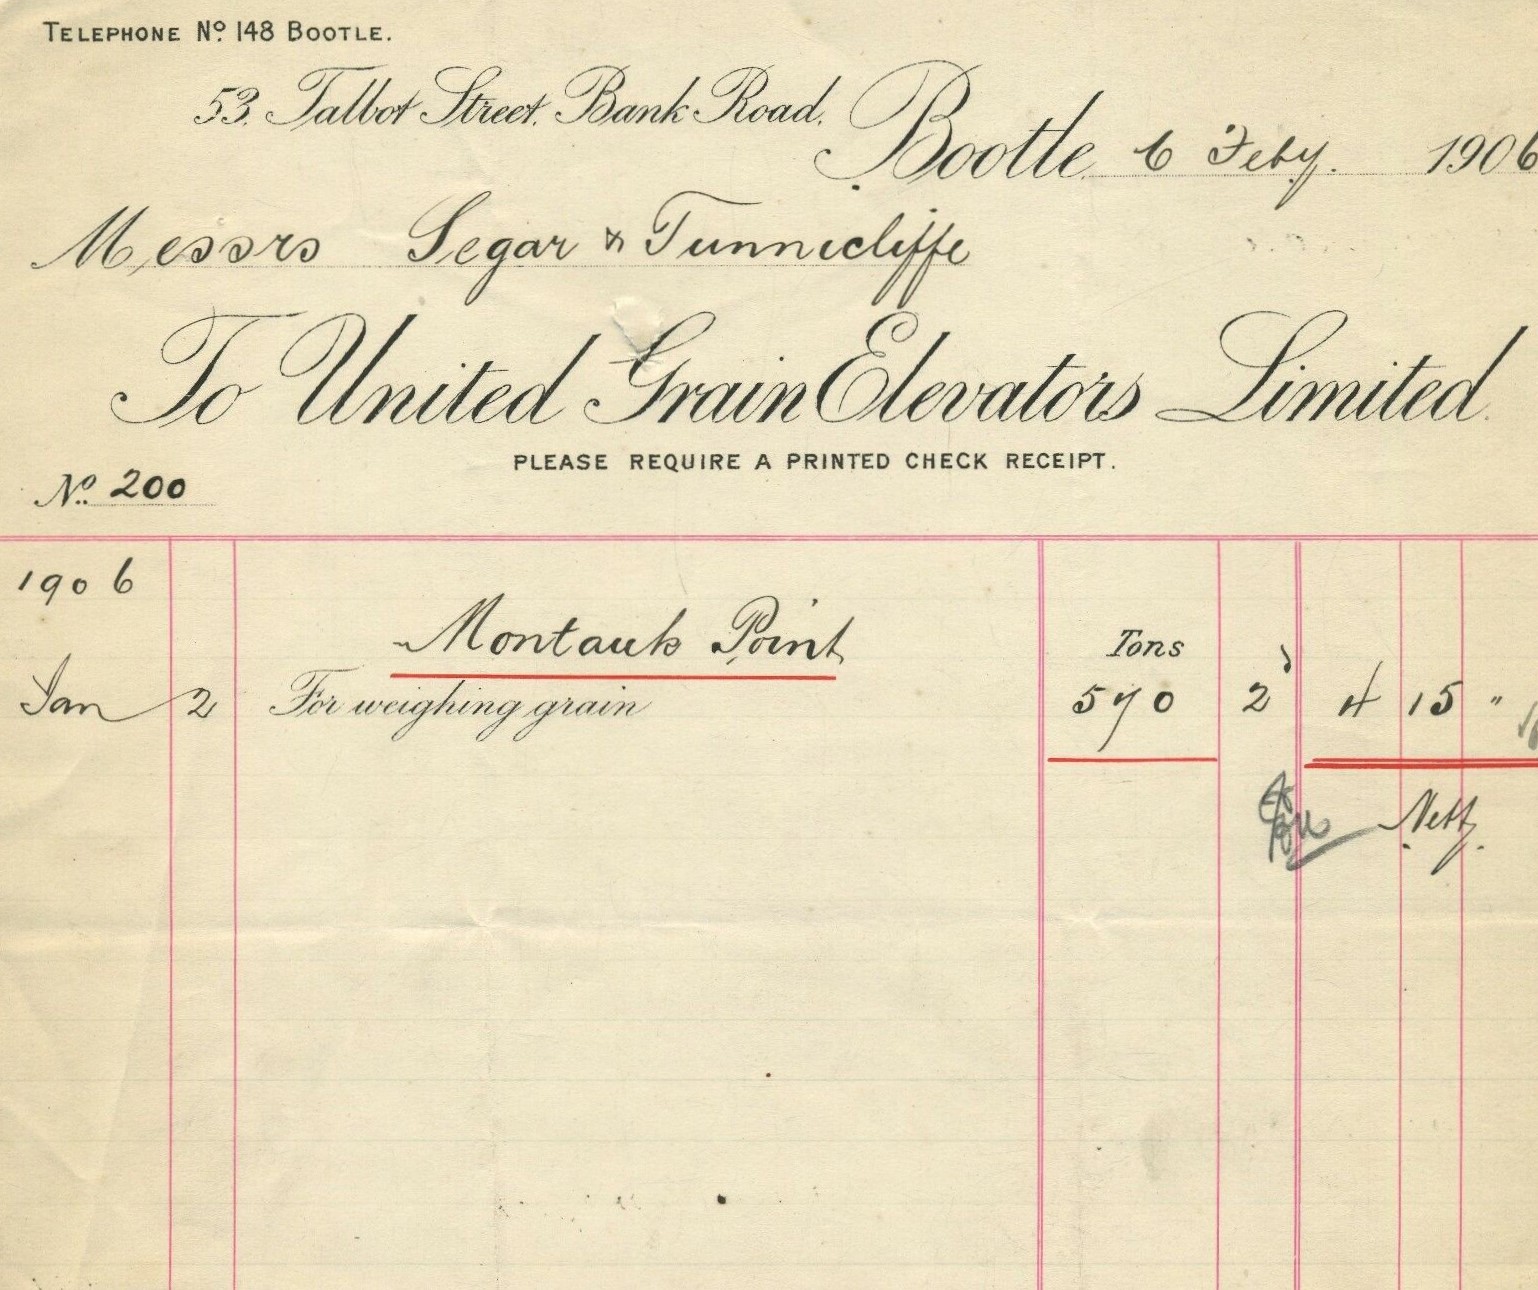 TELEPHONE Nº 148 BOOTLE.
53. Talbot Street. Bank Road. Bootle 6 Feby. 1906
Messrs Segar & Tunnicliffe
To United Grain Elevators Limited.
PLEASE REQUIRE A PRINTED CHECK RECEIPT.
Nº 200
1906
Montauk Point Tons
Jan 2 For weighing grain 570 2d 4 15 "
Nett.